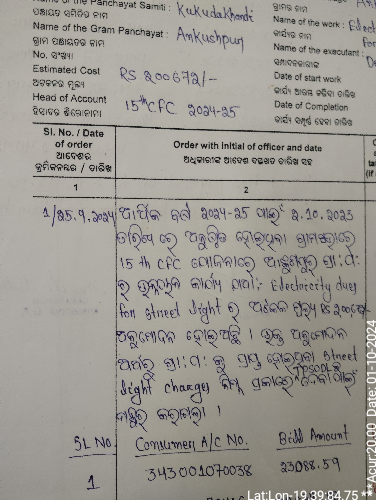 Name of the Panchayat Samiti : Kukudakhandi
ପଞ୍ଚାୟତ ସମିତିର ନାମ
Name of the Gram Panchayat : Ankushpur
ଗ୍ରାମ ପଞ୍ଚାୟତର ନାମ
No. ସଂଖ୍ୟା
Estimated Cost RS 200672/-
ଅଟକଳର ମୂଲ୍ୟ
Head of Account 15th CFC 2024-25
ହିସାବର ଶିରୋନାମା
Name of the work : Elect
କାର୍ଯ୍ୟର ନାମ for
Name of the executant :
ସମ୍ପାଦକଙ୍କ ନାମ
Date of start work
କାର୍ଯ୍ୟ ଆରମ୍ଭ କରିବା ତାରିଖ
Date of Completion
କାର୍ଯ୍ୟ ସମ୍ପୂର୍ଣ୍ଣ ହେବା ତାରିଖ
Sl. No. / Date of order
ଆଦେଶର
କ୍ରମିକନମ୍ବର / ତାରିଖ
Order with Initial of officer and date
ଅଧିକାରୀଙ୍କ ଆଦେଶ ଦସ୍ତଖତ ତାରିଖ ସହ
1 2
1/25.9.2024 ଆର୍ଥିକ ବର୍ଷ 2024-25 ପାଇଁ 2.10.2023
ତାରିଖ ରେ ଅନୁଷ୍ଠିତ ହୋଇଥିବା ଗ୍ରାମସଭାରେ
15 th CFC ଯୋଜନାରେ ଆଙ୍କୁଶପୁର ଗ୍ରା:ପ:
ର କାର୍ଯ୍ୟ ଯଥା:- Electricity dues
for street light ର ମୂଲ୍ୟ RS 200672/-
ଅନୁମୋଦନ ହୋଇଅଛି । ଉକ୍ତ ଅନୁମୋଦନ
ଗ୍ରା:ପ: କୁ ପ୍ରାପ୍ତ ହୋଇଥିବା Street
light charges ପ୍ରକାରେ TPSODL ଦେବା ପାଇଁ
ମଞ୍ଜୁର କରାଗଲା ।
SL No. Consumer A/C No. Bill Amount
1 343001070038 23088.59
Lat:Lon-19.39:84.75 *** Acur:20.00 Date: 01-10-2024